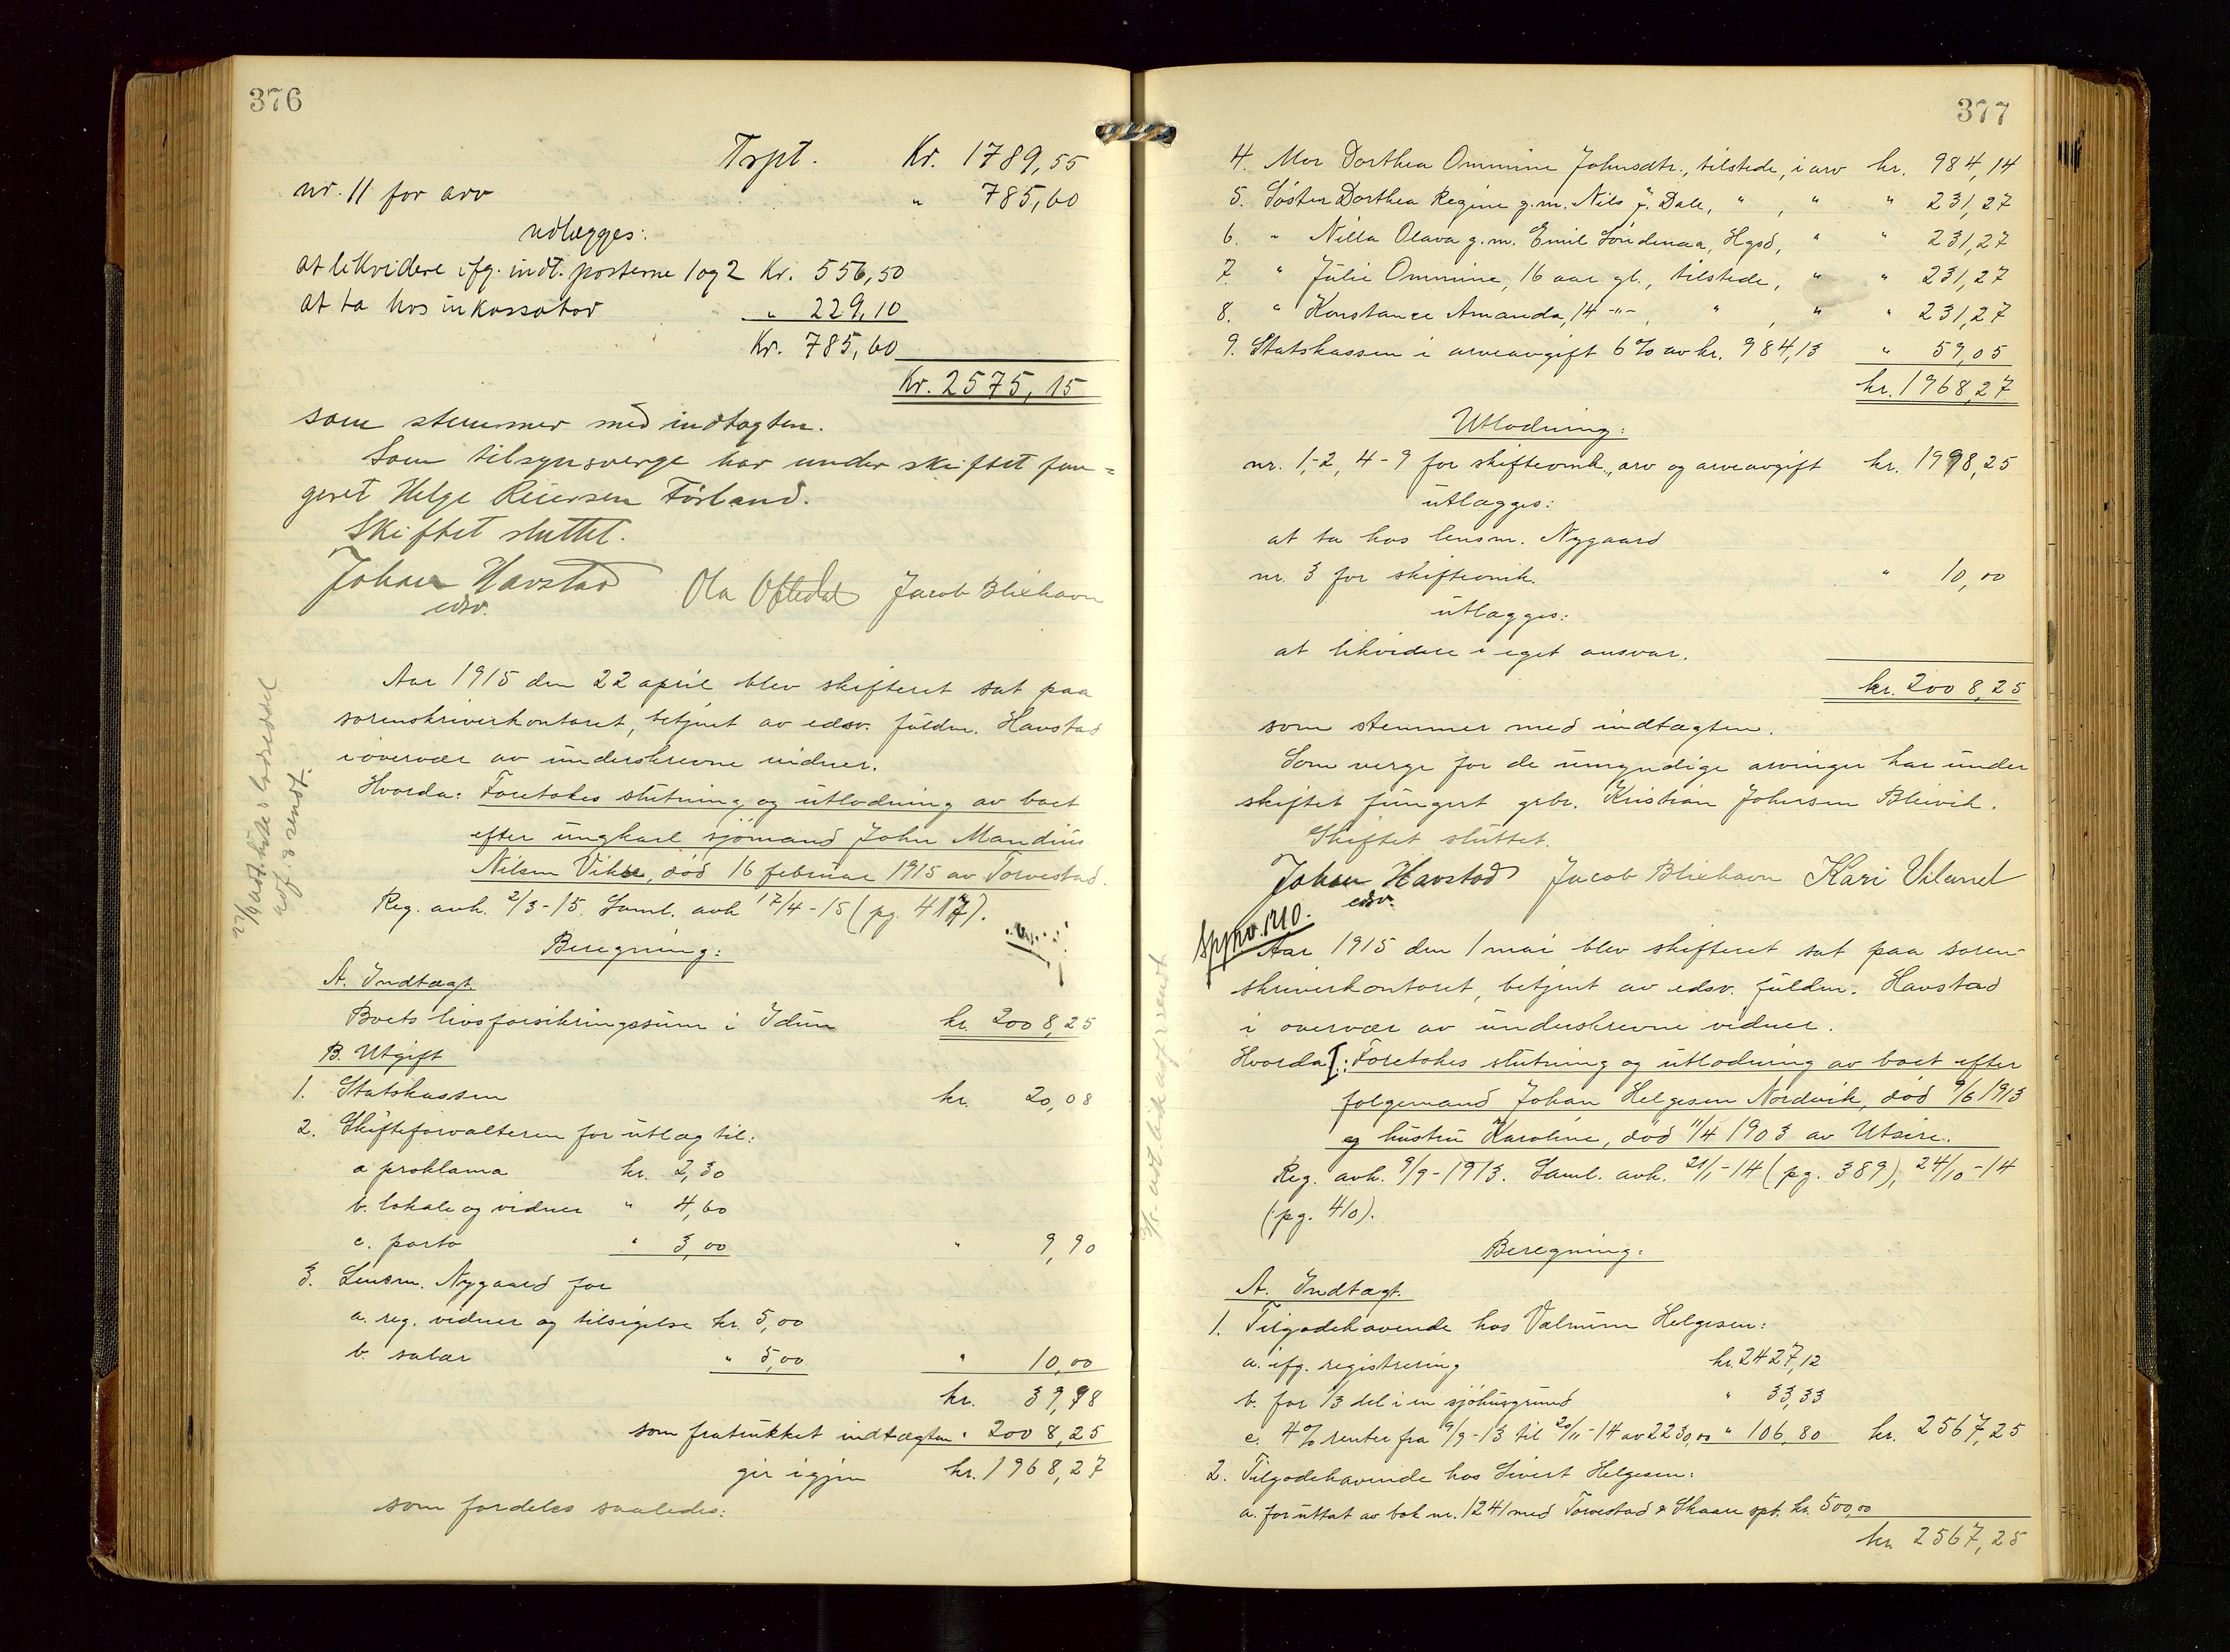 376
Trpt. Kr. 1789,55
nr. 11 for arv " 785,60
udlægges:
at likvidere ifg. indt. posterne 1 og 2 Kr. 556,50
at ta hos inkassator " 229,10
Kr. 785,60
Kr. 2575,15
som stemmer med indtægten.
Som tilsynsverge har under skiftet fun=
geret Helge Reiersen Förland.
Skiftet sluttet.
Johan Havstad Ola Oftedal Jacob Blixhavn
edsv.
Aar 1915 den 22 april blev skifteret sat paa
sorenskriverkontoret, betjent av edsv. fuldm. Havstad
i overvær av underskrevne vidner.
Hvorda: Foretokes slutning og utlodning av boet
efter ungkarl sjömand John Mandius
Nilsen Vikse, död 16 februar 1915 av Torvestad.
Reg. avh. 2/3-15. Saml. avh 17/4-15 (pg. 417).
Beregning:
A. Indtægt.
Boets livsforsikringssum i Idun kr. 2008,25
B. Utgift
1. Statskassen kr. 20,08
2. Skifteforvalteren for utlæg til:
a proklama kr. 2,30
b. lokale og vidner " 4,60
c. porto " 3,00 " 9,90
3. Lensm. Nygaard for
a. reg. vidner og tilsigelse kr. 5,00
b. salær " 5,00 " 10,00
kr. 39,98
som fratrukket indtægten " 2008,25
gir igjen kr. 1968,27
som fordeles saaledes:
377
4. Mor Dorthea Ommine Johnsdtr., tilstede, i arv kr. 984,14
5. Söster Dorthea Regine g.m. Nils J. Dale, " , " " 231,27
6. " Nilla Olava g.m. Emil Söndenaa, Hgsd, " " 231,27
7. " Julie Ommine, 16 aar gl., tilstede, " " 231,27
8. " Konstanse Amanda, 14 -"-, " , " " 231,27
9. Statskassen i arveavgift 6% av kr. 984,13 " 59,05
kr. 1968,27
Utlodning:
nr. 1,-2, 4-9 for skifteomk., arv og arveavgift kr. 1998,25
utlægges:
at ta hos lensm. Nygaard
nr. 3 for skifteomk. " 10,00
utlægges:
at likvidere i eget ansvar.
kr. 2008,25
som stemmer med indtægten.
Som verge for de umyndige arvinger har under
skiftet fungert grbr. Kristian Johnsen Bleivik.
Skiftet sluttet.
Johan Havstad Jacob Blixhavn Kari Viland
edsv.
Aar 1915 den 1 mai blev skifteret sat paa soren-
skriverkontoret, betjent av edsv. fuldm. Havstad
i overvær av underskrevne vidner.
Hvorda I: Foretokes slutning og utlodning av boet efter
folgemand Johan Helgesen Nordvik, död 9/6 1913
og hustru Karoline, död 11/4 1903 av Utsire.
Reg. avh. 9/9-1913. Saml. avh. 21/1-14 (pg. 389), 24/10-14
(pg. 410).
Beregning:
A. Indtægt.
1. Tilgodehavende hos Valmün Helgesen:
a. ifg. registrering kr. 2427,12
b. for 1/3 del i en sjöhusgrund " 33,33
c. 4% renter fra 9/9-13 til 20/11-14 av 2230,00 " 106,80 kr. 2567,25
2. Tilgodehavende hos Sivert Helgesen:
a. for uttat av bok nr. 1241 med Torvestad & Skaare spb. kr. 500,00
kr. 2567,25